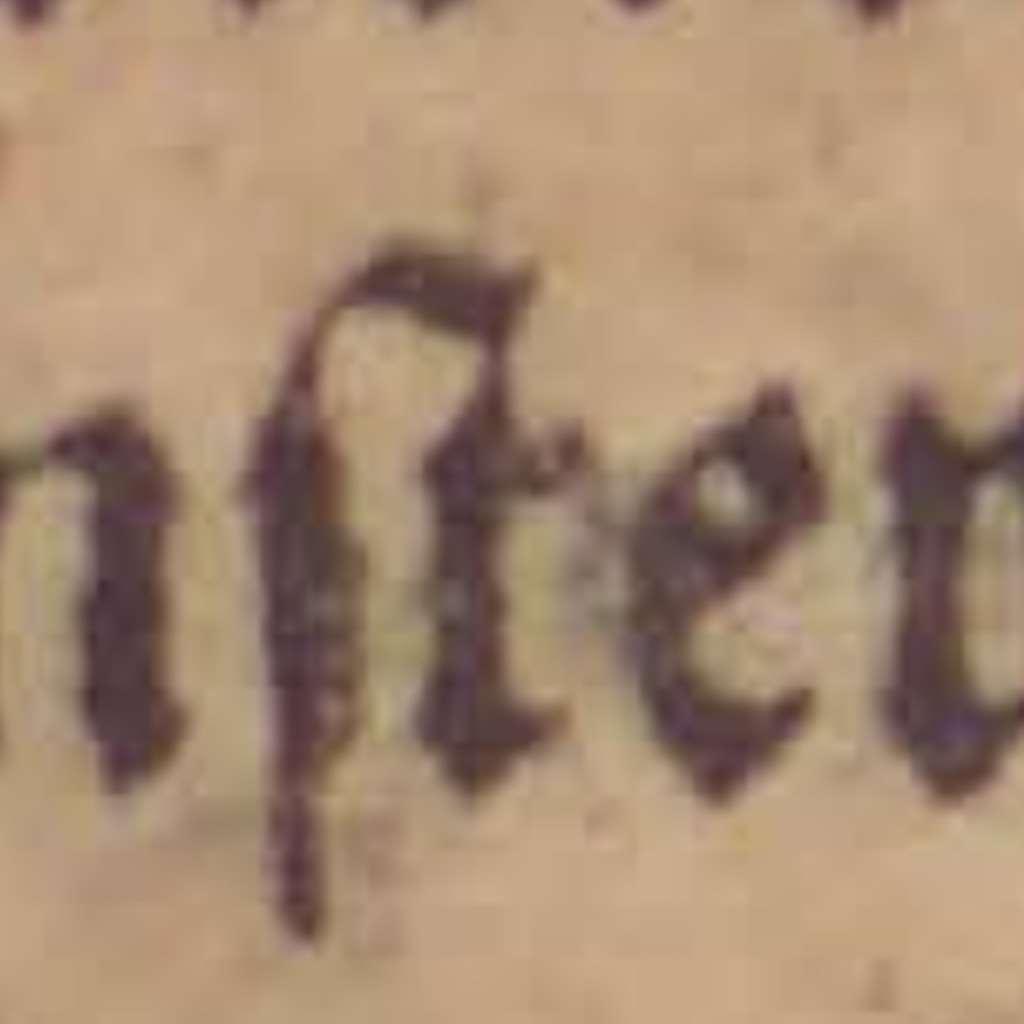 nſter